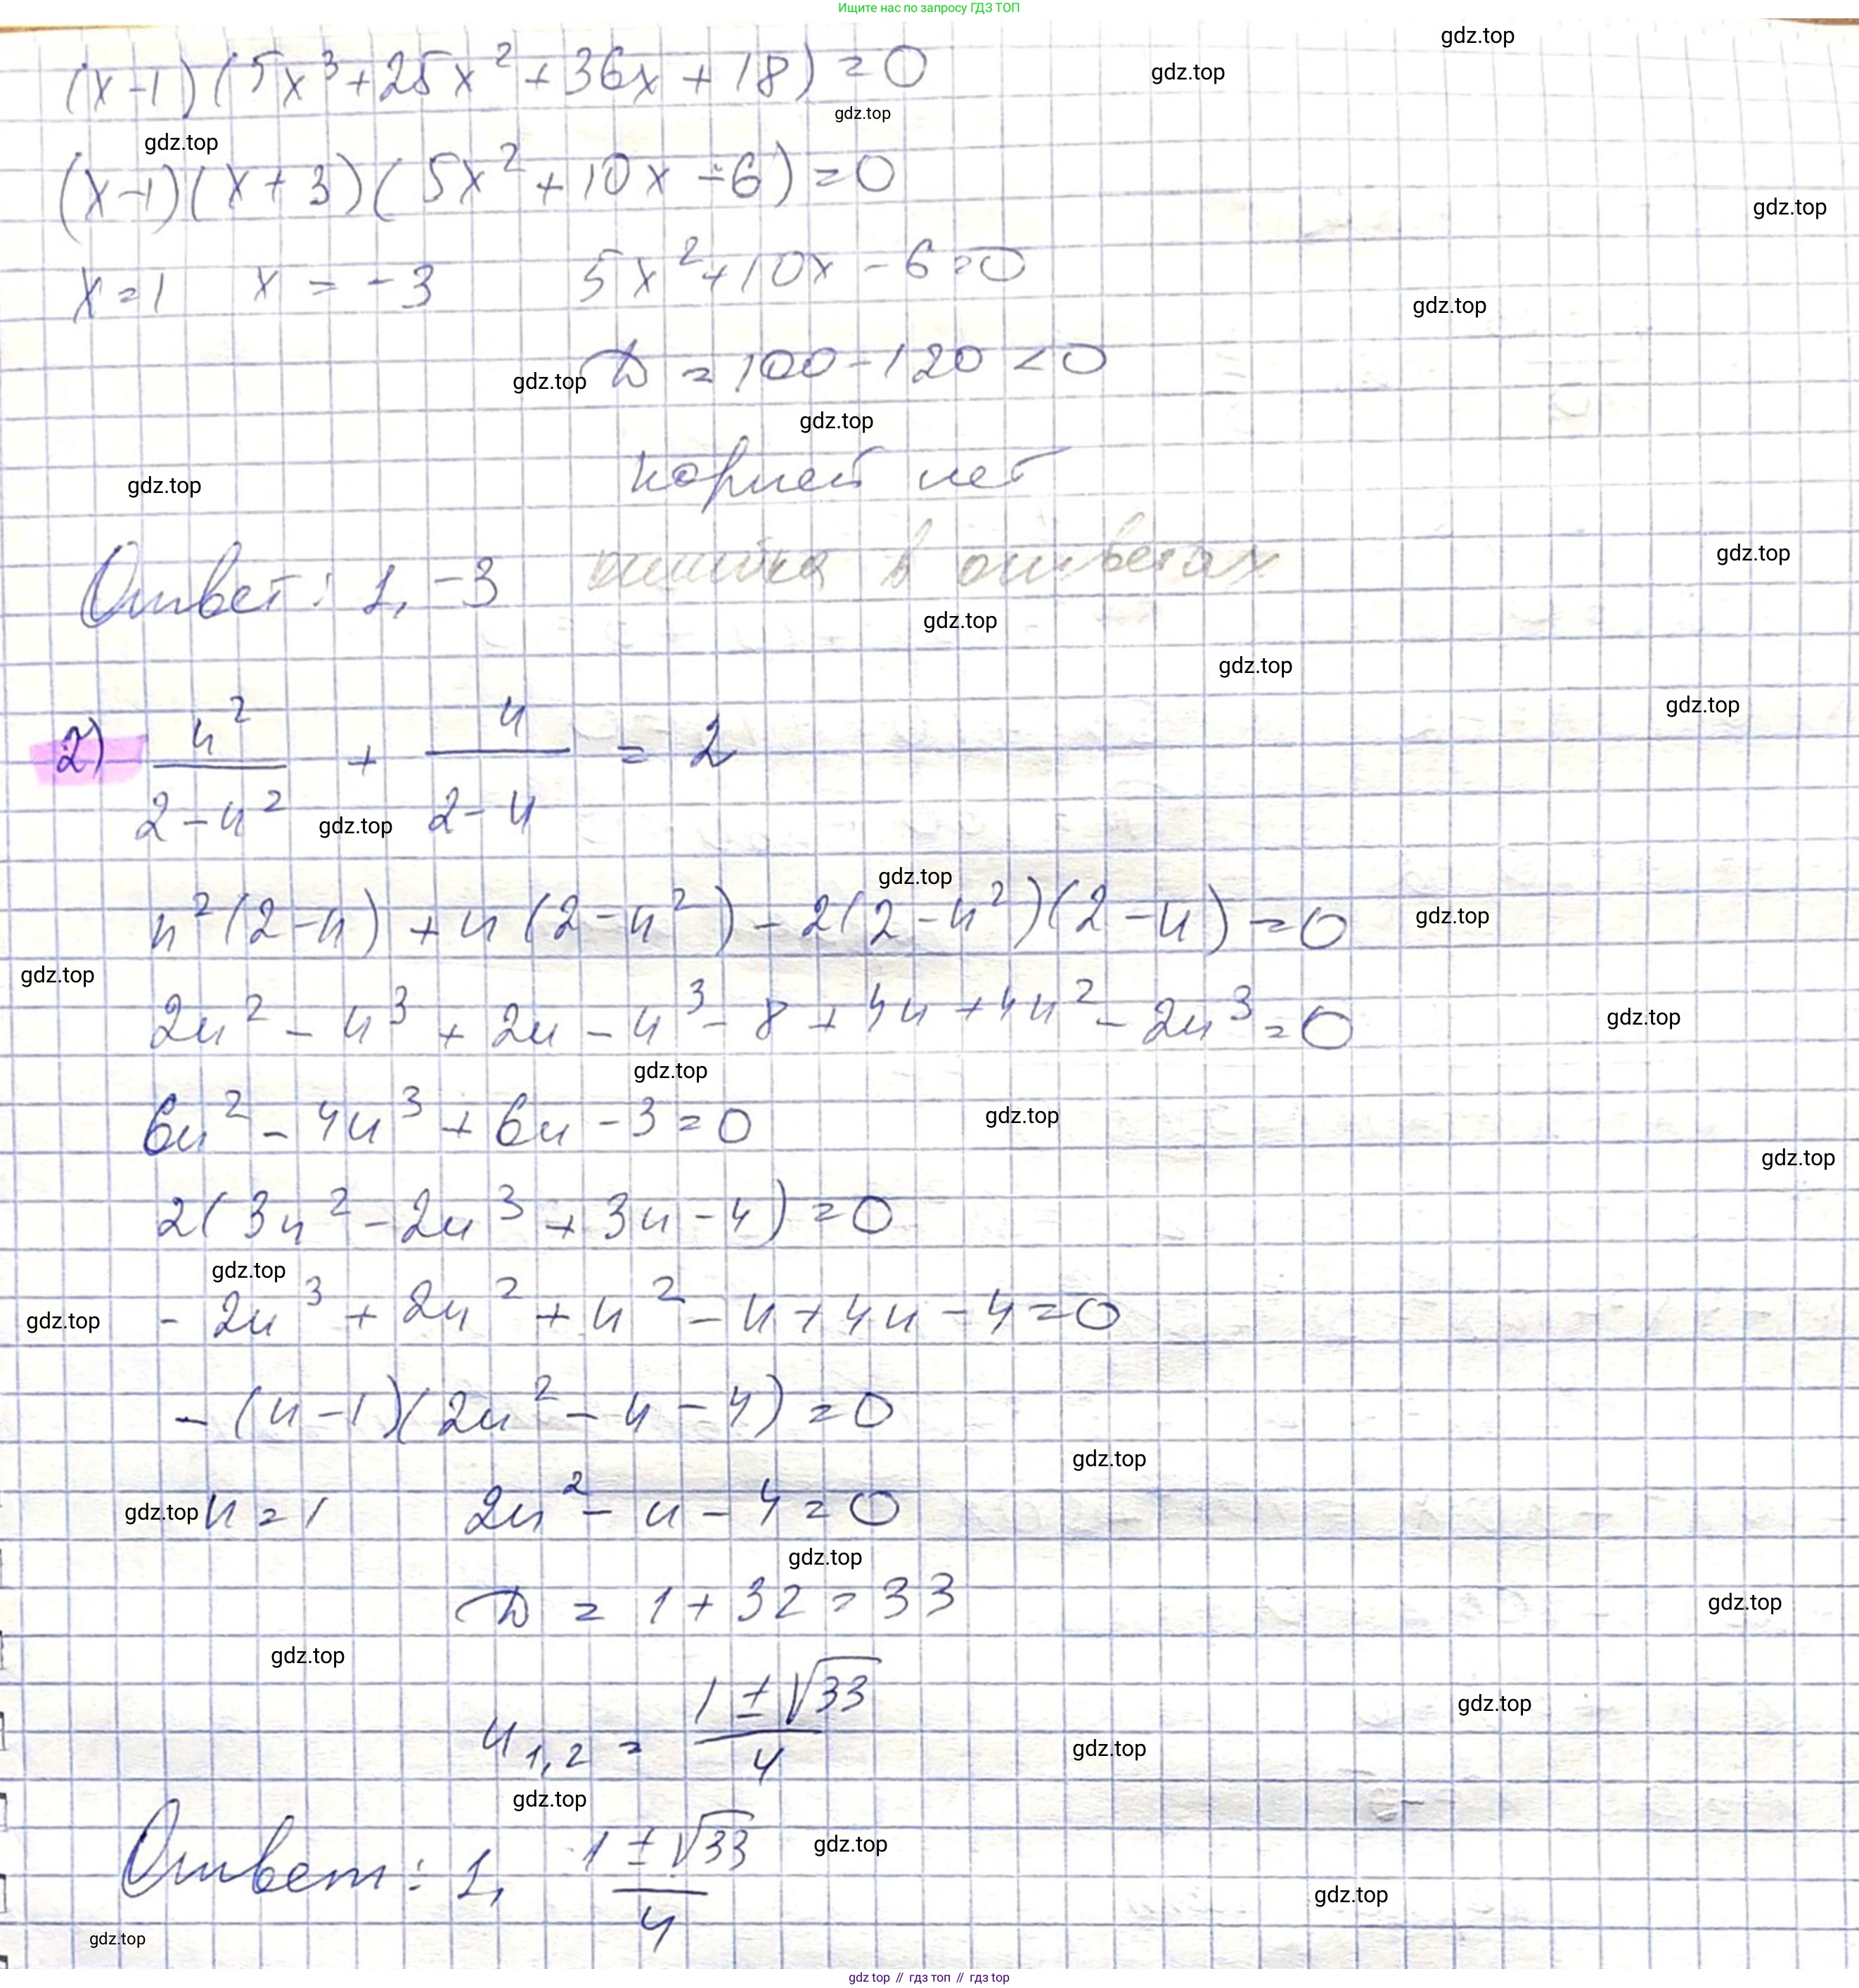 Ищите нас по запросу ГДЗ ТОП
gdz.top
(x-1)(5x³+25x²+36x+18)=0
gdz.top
gdz.top
gdz.top
(x-1)(x+3)(5x²+10x÷6)=0
gdz.top
x=1 x=-3 5x²+10x-6=0
gdz.top
gdz.top D=100-120<0
gdz.top
gdz.top корней нет
Ответ: 1, -3 ошибка в ответах
gdz.top
gdz.top
gdz.top
gdz.top
2) u²/(2-u²) + u/(2-u) = 2
gdz.top
gdz.top
u²(2-u)+u(2-u²)-2(2-u²)(2-u)=0
gdz.top
gdz.top
2u²-u³+2u-u³-8+4u+4u²-2u³=0
gdz.top
gdz.top
6u²-4u³+6u-3=0
gdz.top
gdz.top
2(3u²-2u³+3u-4)=0
gdz.top
gdz.top -2u³+2u²+u²-u+4u-4=0
-(u-1)(2u²-u-4)=0
gdz.top
gdz.top u=1 2u²-u-4=0
gdz.top
D=1+32=33
gdz.top
gdz.top
u₁,₂=(1±√33)/4
gdz.top
gdz.top
gdz.top
Ответ: 1, (1±√33)/4
gdz.top
gdz.top
gdz.top
gdz top // гдз топ // гдз top